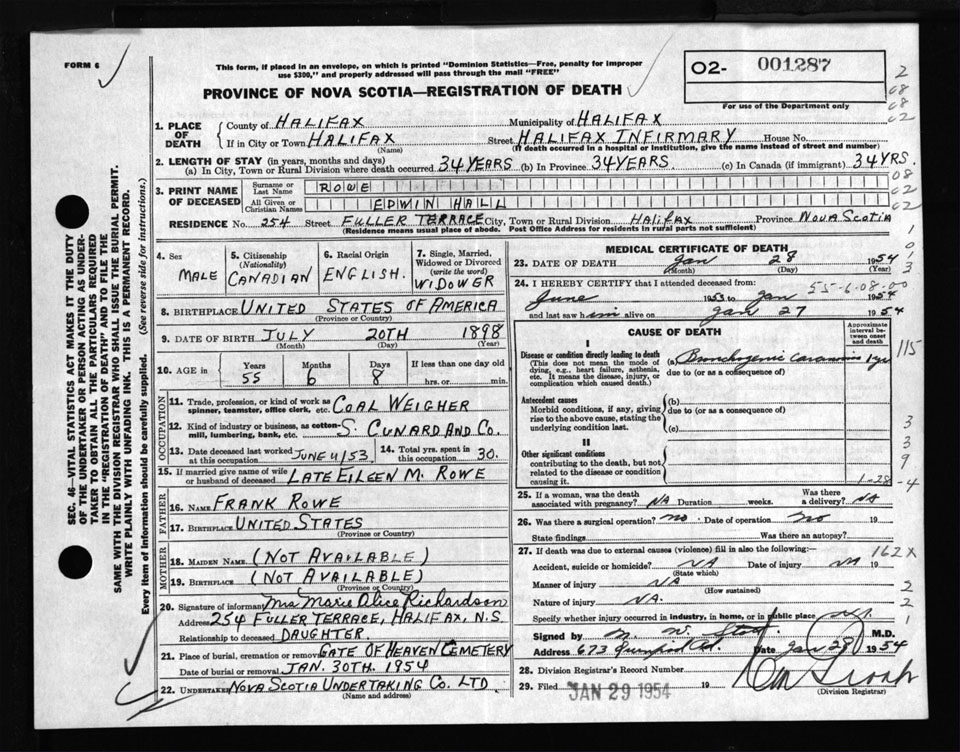 FORM 6
This form, if placed in an envelope, on which is printed "Dominion Statistics—Free, penalty for improper
use $300," and properly addressed will pass through the mail "FREE"
O2- 001287
For use of the Department only
PROVINCE OF NOVA SCOTIA—REGISTRATION OF DEATH
SEC. 46—VITAL STATISTICS ACT MAKES IT THE DUTY
OF THE UNDERTAKER OR PERSON ACTING AS UNDER-
TAKER TO OBTAIN ALL THE PARTICULARS REQUIRED
IN THE "REGISTRATION OF DEATH" AND TO FILE THE
SAME WITH THE DIVISION REGISTRAR WHO SHALL ISSUE THE BURIAL PERMIT.
WRITE PLAINLY WITH UNFADING INK. THIS IS A PERMANENT RECORD.
Every item of information should be carefully supplied. (See reverse side for instructions.)
1. PLACE OF DEATH
County of HALIFAX Municipality of HALIFAX
If in City or Town HALIFAX Street HALIFAX INFIRMARY House No.
(Name) (If death occurred in a hospital or institution, give the name instead of street and number)
2. LENGTH OF STAY (in years, months and days)
(a) In City, Town or Rural Division where death occurred 34 YEARS (b) In Province 34 YEARS. (c) In Canada (if immigrant) 34 YRS.
3. PRINT NAME OF DECEASED
Surname or Last Name ROWE
All Given or Christian Names EDWIN HALL
RESIDENCE No. 254 Street FULLER TERRACE City, Town or Rural Division Halifax Province Nova Scotia
(Residence means usual place of abode. Post Office Address for residents in rural parts not sufficient)
4. Sex MALE
5. Citizenship (Nationality) CANADIAN
6. Racial Origin ENGLISH.
7. Single, Married, Widowed or Divorced (write the word) WIDOWER
8. BIRTHPLACE UNITED STATES OF AMERICA
(Province or Country)
9. DATE OF BIRTH JULY 20TH 1898
(Month) (Day) (Year)
10. AGE in Years 55 Months 6 Days 8 If less than one day old hrs. or min.
OCCUPATION
11. Trade, profession, or kind of work as spinner, teamster, office clerk, etc. COAL WEIGHER
12. Kind of industry or business, as cotton-mill, lumbering, bank, etc. S. CUNARD AND CO.
13. Date deceased last worked at this occupation JUNE 4/53 14. Total yrs. spent in this occupation 30.
15. If married give name of wife or husband of deceased LATE EILEEN M. ROWE
FATHER
16. NAME FRANK ROWE
17. BIRTHPLACE UNITED STATES
(Province or Country)
MOTHER
18. MAIDEN NAME (NOT AVAILABLE)
19. BIRTHPLACE (NOT AVAILABLE)
(Province or Country)
20. Signature of informant Mrs Marie Alice Richardson
Address 254 FULLER TERRACE, HALIFAX, N.S.
Relationship to deceased DAUGHTER.
21. Place of burial, cremation or removal GATE OF HEAVEN CEMETERY
Date of burial or removal JAN. 30TH. 1954
22. UNDERTAKER NOVA SCOTIA UNDERTAKING CO. LTD.
(Name and address)
MEDICAL CERTIFICATE OF DEATH
23. DATE OF DEATH Jan 28 1954
(Month) (Day) (Year)
24. I HEREBY CERTIFY that I attended deceased from: 55-6-08-00
June 1953 to Jan 1954
and last saw him alive on Jan 27 1954
CAUSE OF DEATH
Approximate interval between onset and death
I
Disease or condition directly leading to death
(This does not mean the mode of dying, e.g., heart failure, asthenia, etc. It means the disease, injury, or complication which caused death.)
(a) Bronchogenic 1 yr
due to (or as a consequence of)
Antecedent causes
Morbid conditions, if any, giving rise to the above cause, stating the underlying condition last.
(b)
due to (or as a consequence of)
(c)
II
Other significant conditions
contributing to the death, but not related to the disease or condition causing it.
1-28-4
25. If a woman, was the death associated with pregnancy? NA Duration weeks. Was there a delivery? NA
26. Was there a surgical operation? no Date of operation no 19
State findings Was there an autopsy?
27. If death was due to external causes (violence) fill in also the following:— 162X
Accident, suicide or homicide? NA Date of injury NA 19
(State which)
Manner of injury NA
(How sustained)
Nature of injury NA.
Specify whether injury occurred in industry, in home, or in public place
Signed by M.D.
Address 673 Date Jan 28 1954
28. Division Registrar's Record Number
29. Filed JAN 29 1954 19
(Division Registrar)
2
08
08
02
08
02
02
1
0
1
3
115
3
3
9
2
2
1